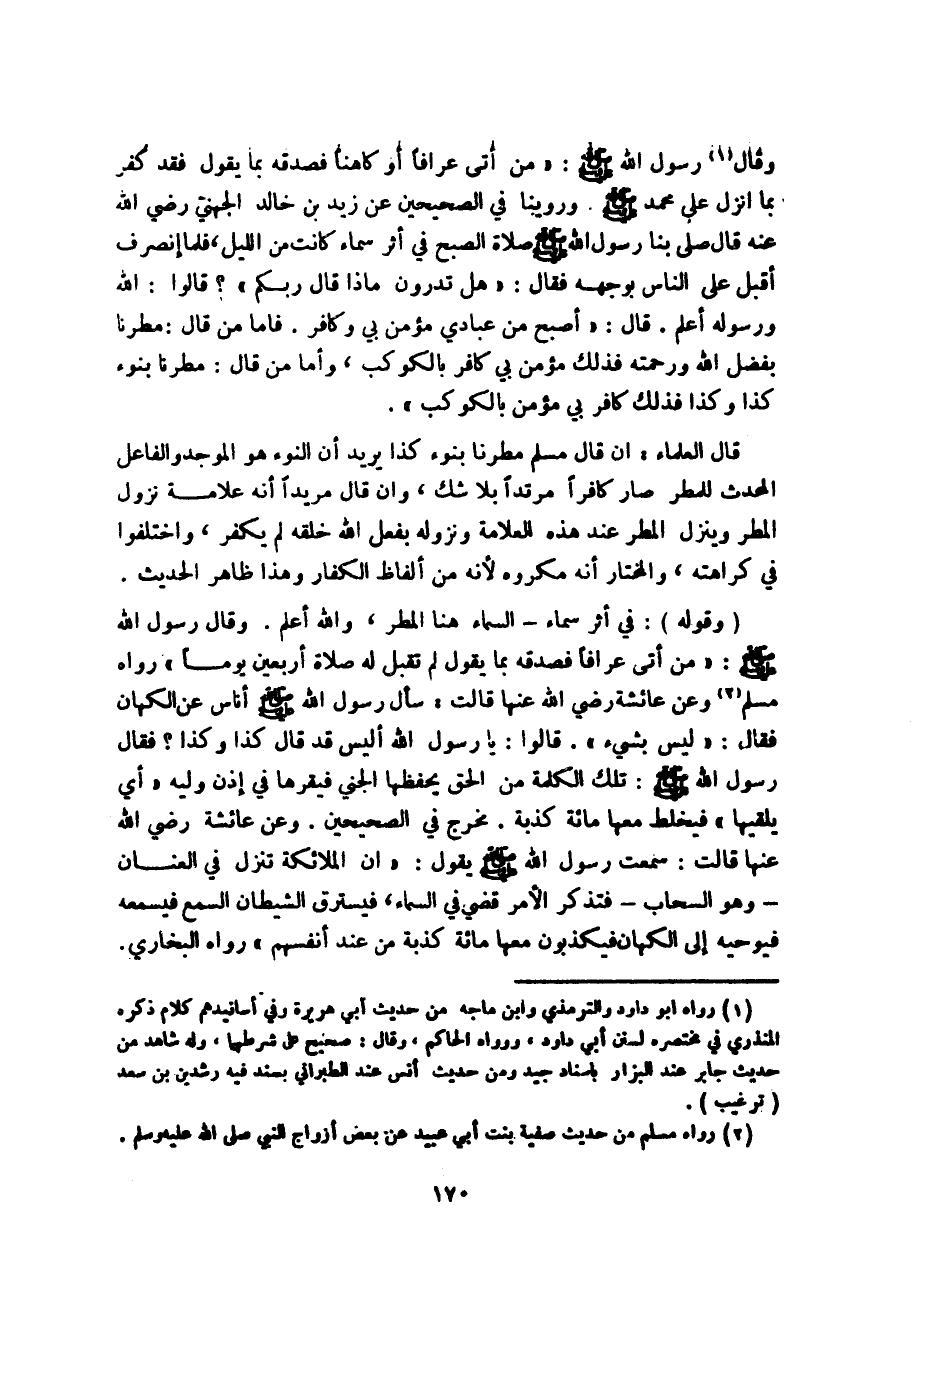 وقال(١) رسول الله ﷺ : « من أتى عرافاً أو كاهناً فصدقه بما يقول فقد كفر
بما انزل على محمد ﷺ . وروينا في الصحيحين عن زيد بن خالد الجهني رضي الله
عنه قال صلى بنا رسول الله ﷺ صلاة الصبح في أثر سماء كانت من الليل ، فلما إنصرف
أقبل على الناس بوجهـه فقال : « هل تدرون ماذا قال ربـكم » ؟ قالوا : الله
ورسوله أعلم . قال : « أصبح من عبادي مؤمن بي وكافر . فاما من قال : مطرنا
بفضل الله ورحمته فذلك مؤمن بي كافر بالكوكب ، وأما من قال : مطرنا بنوء
كذا وكذا فذلك كافر بي مؤمن بالكوكب » .
قال العلماء : ان قال مسلم مطرنا بنوء كذا يريد أن النوء هو الموجد والفاعل
المحدث للمطر صار كافراً مرتداً بلا شك ، وان قال مريداً أنه علامـــة نزول
المطر وينزل المطر عند هذه العلامة ونزوله بفعل الله خلقه لم يكفر ، واختلفوا
في كراهته ، والمختار أنه مكروه لأنه من ألفاظ الكفار وهذا ظاهر الحديث .
( وقوله ) : في أثر سماء – السماء هنا المطر ، والله أعلم . وقال رسول الله
ﷺ : « من أتى عرافاً فصدقه بما يقول لم تقبل له صلاة أربعين يومـــاً » رواه
مسلم(٢) وعن عائشة رضي الله عنها قالت : سأل رسول الله ﷺ أناس عن الكهان
فقال : « ليس بشيء » . قالوا : يا رسول الله أليس قد قال كذا وكذا ؟ فقال
رسول الله ﷺ : تلك الكلمة من الحق يحفظها الجني فيقرها في إذن وليه « أي
يلقيها » فيخلط معها مائة كذبة . مخرج في الصحيحين . وعن عائشة رضي الله
عنها قالت : سمعت رسول الله ﷺ يقول : « ان الملائكة تنزل في العنـــان
– وهو السحاب – فتذكر الأمر قضي في السماء ، فيسترق الشيطان السمع فيسمعه
فيوحيه إلى الكهان فيكذبون معها مائة كذبة من عند أنفسهم » رواه البخاري.
(١) رواه ابو داود والترمذي وابن ماجه من حديث أبي هريرة وفي أسانيدهم كلام ذكره
المنذري في مختصره لسنن أبي داود ، ورواه الحاكم ، وقال : صحيح على شرطها ، وله شاهد من
حديث جابر عند البزار باسناد جيد ومن حديث أنس عند الطبراني بسند فيه رشدين بن سعد
( ترغيب ) .
(٢) رواه مسلم من حديث صفية بنت أبي عبيد عن بعض أزواج النبي صلى الله عليه وسلم .
١٧٠